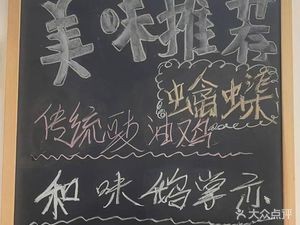 美味推荐
蟛蜞
传统豉油鸡
和味鹅掌亦
大众点评